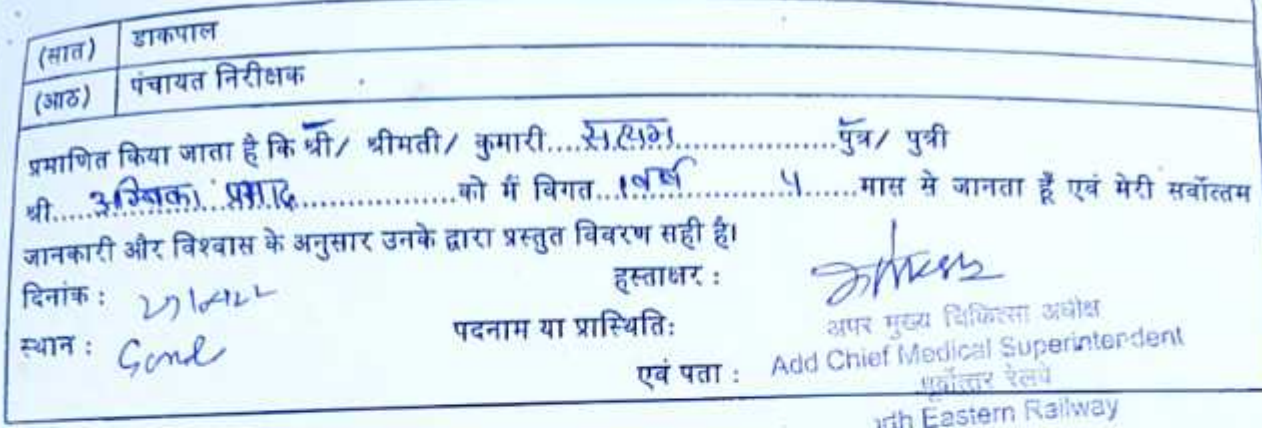 (सात) डाकपाल
(आठ) पंचायत निरीक्षक
प्रमाणित किया जाता है कि श्री/ श्रीमती/ कुमारी....सत्यम...................पुत्र/ पुत्री
श्री.....अम्बिका प्रसाद..................को मैं विगत...1वर्ष............५......मास से जानता हूँ एवं मेरी सर्वोत्तम
जानकारी और विश्वास के अनुसार उनके द्वारा प्रस्तुत विवरण सही है।
दिनांक : हस्ताक्षर :
स्थान : पदनाम या प्रास्थिति: अपर मुख्य चिकित्सा अधीक्ष
एवं पता : Add Chief Medical Superintendent
पूर्वोत्तर रेलवे
Eastern Railway